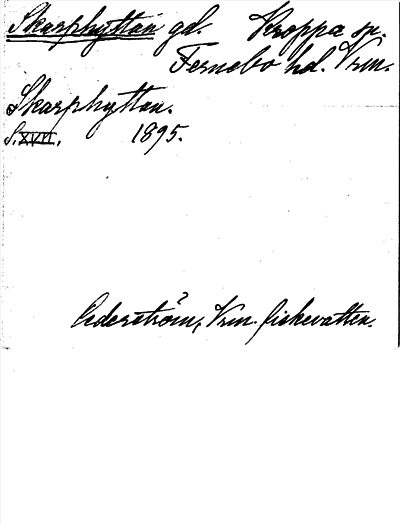 Skarphyttan gd. Kroppa sn.
Fernebo hd. Vrm.
Skarphyttan.
S. XVII. 1895.
Cederström, Vrm. fiskevatten.